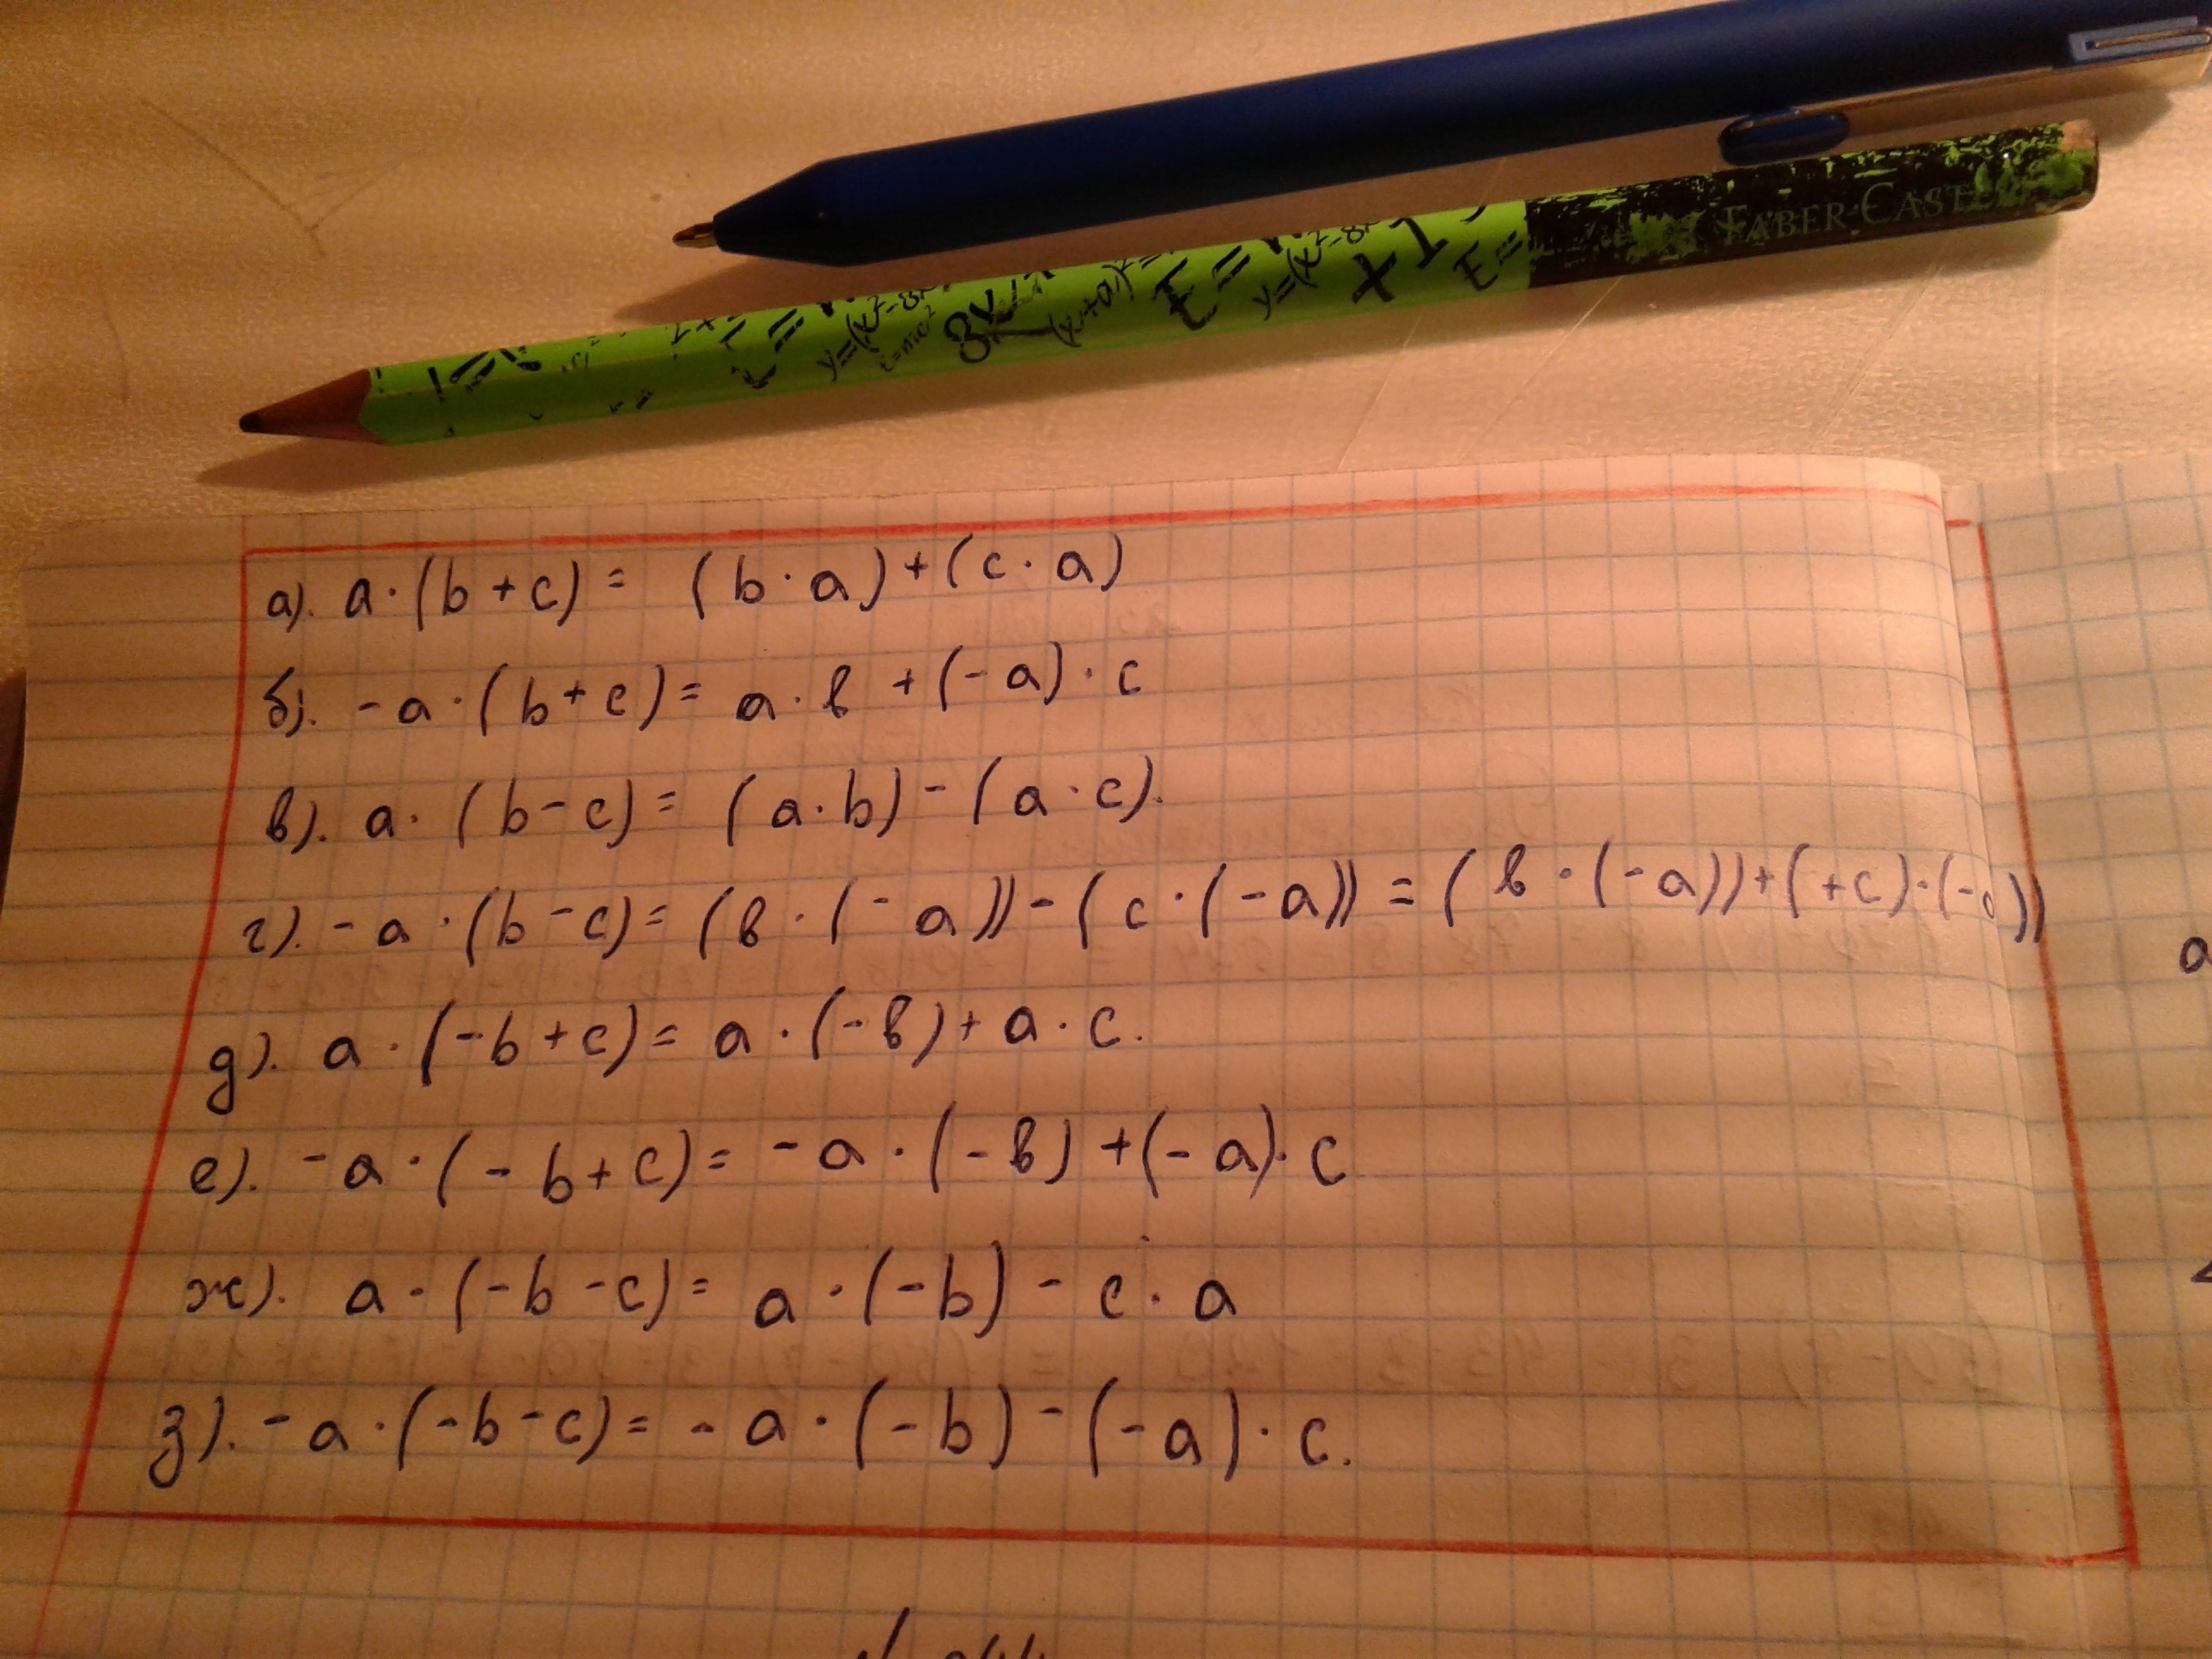 FABER CASTEL
y=(x²-8x
E=mc²
8x
(x+a)²=
E=
y=(x²-8x
x+1
E=
а). a·(b+c)= (b·a)+(c·a)
б). -a·(b+c)= a·b+(-a)·c
в). a·(b-c)= (a·b)-(a·c).
г). -a·(b-c)= (b·(-a))-(c·(-a))=(b·(-a))+(+c)·(-a))
д). a·(-b+c)= a·(-b)+a·c.
е). -a·(-b+c)= -a·(-b)+(-a)·c
ж). a·(-b-c)= a·(-b)-c·a
з). -a·(-b-c)= -a·(-b)-(-a)·c.
a